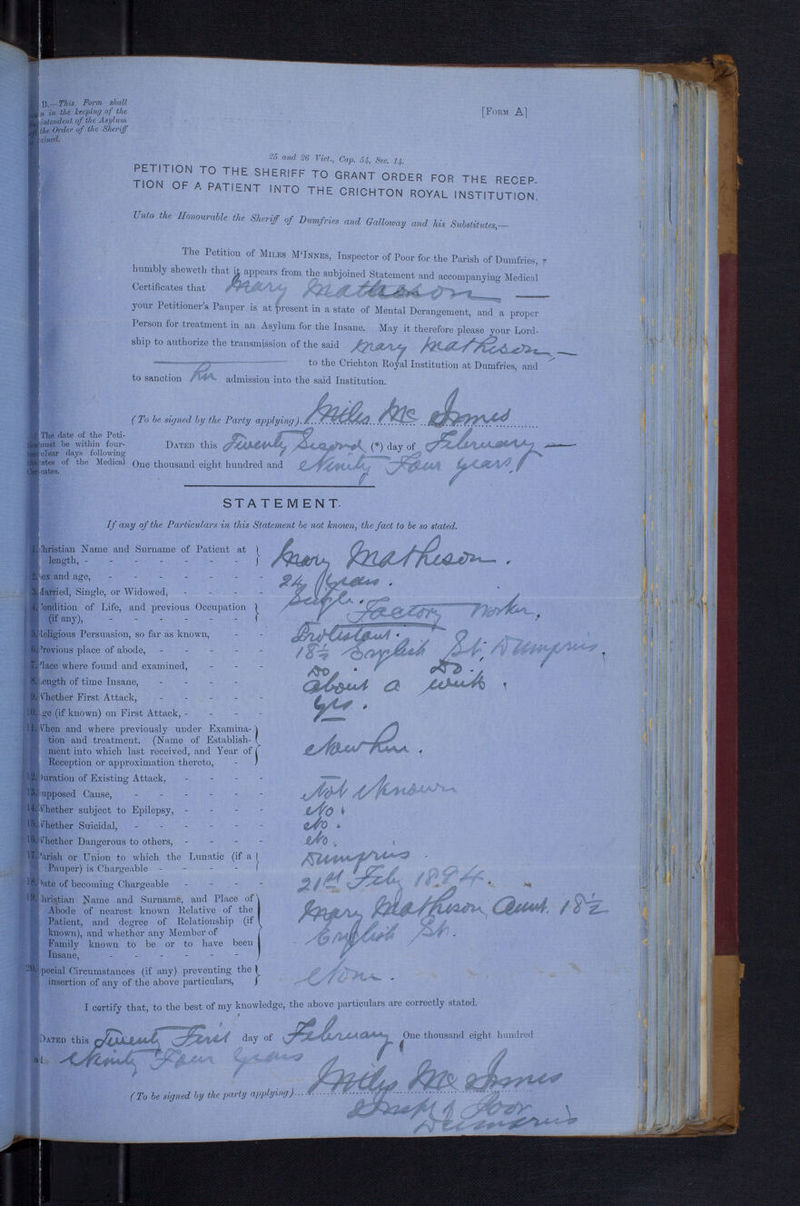 D.—This Form shall
in the keeping of the
of the Asylum
the Order of the Sheriff
[FORM A]
25 and 26 Vict., Cap. 54, Sec. 14.
PETITION TO THE SHERIFF TO GRANT ORDER FOR THE RECEP-
TION OF A PATIENT INTO THE CRICHTON ROYAL INSTITUTION.
Unto the Honourable the Sheriff of Dumfries and Galloway and his Substitutes,—
The Petition of MILES M'INNES, Inspector of Poor for the Parish of Dumfries,
humbly sheweth that it appears from the subjoined Statement and accompanying Medical
Certificates that Mary Matheson —
your Petitioner's Pauper is at present in a state of Mental Derangement, and a proper
Person for treatment in an Asylum for the Insane. May it therefore please your Lord-
ship to authorize the transmission of the said Mary Matheson —
— to the Crichton Royal Institution at Dumfries, and
to sanction her admission into the said Institution.
(To be signed by the Party applying) Miles McInnes
The date of the Peti-
must be within four-
clear days following
of the Medical
DATED this Twenty Second (*) day of February —
One thousand eight hundred and Ninety Four years
STATEMENT.
If any of the Particulars in this Statement be not known, the fact to be so stated.
1. Christian Name and Surname of Patient at length, - Mary Matheson.
2. Sex and age, - 24 years.
3. Married, Single, or Widowed, - Single.
4. Condition of Life, and previous Occupation (if any), - Factory Worker,
5. Religious Persuasion, so far as known, - Protestant.
6. Previous place of abode, - 18½ English St. Dumfries.
7. Place where found and examined, - Do. Do.
8. Length of time Insane, - about a week.
9. Whether First Attack, - Yes.
10. Age (if known) on First Attack, -
11. When and where previously under Examina-
tion and treatment. (Name of Establish-
ment into which last received, and Year of
Reception or approximation thereto, -
12. Duration of Existing Attack, -
13. Supposed Cause, - Not Known
14. Whether subject to Epilepsy, - No.
15. Whether Suicidal, - No.
16. Whether Dangerous to others, - No.
17. Parish or Union to which the Lunatic (if a
Pauper) is Chargeable - Dumfries
18. Date of becoming Chargeable - 21st Feby 1894.
19. Christian Name and Surname, and Place of
Abode of nearest known Relative of the
Patient, and degree of Relationship (if
known), and whether any Member of
Family known to be or to have been
Insane, -
Mary Matheson, Aunt. 18½
English St.
20. Special Circumstances (if any) preventing the
insertion of any of the above particulars, None.
I certify that, to the best of my knowledge, the above particulars are correctly stated.
DATED this Twenty First day of February One thousand eight hundred
Ninety Four Years
(To be signed by the party applying) Miles McInnes
Insp of Poor
Dumfries